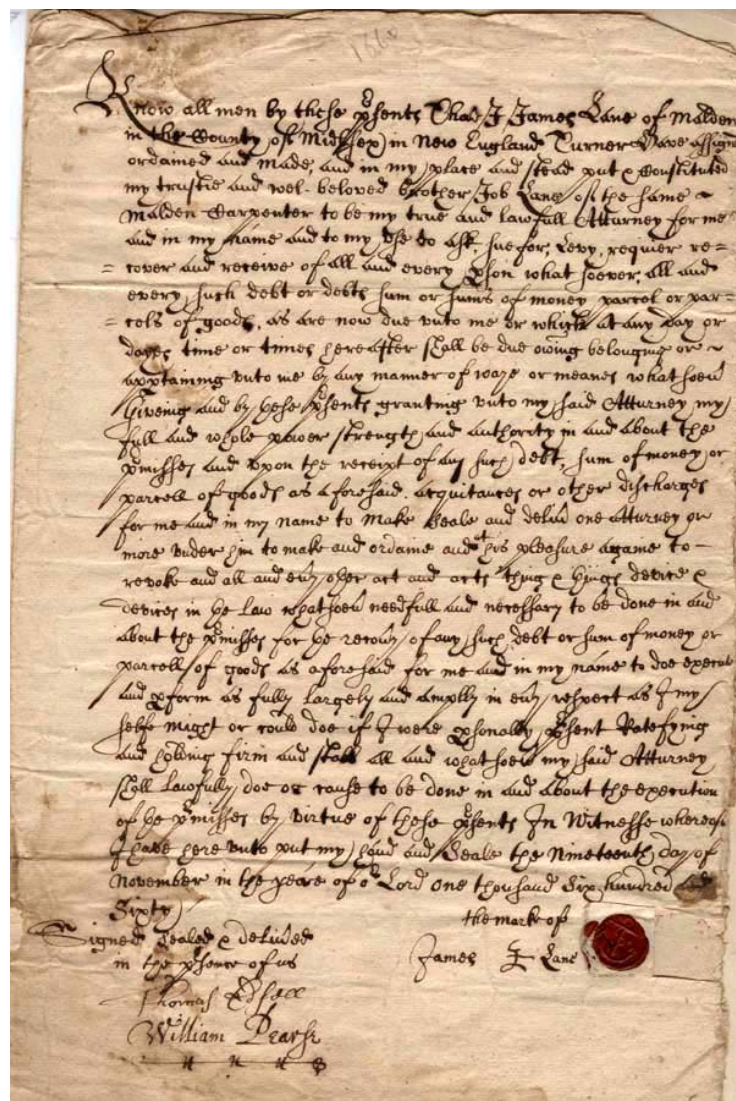 1660
Know all men by these psents That I James Lane of Malden
in the County of Midlsex in New England Turner Have assign
ordained and made, and in my place and stead put & Constituted
my trustie and wel-beloved brother Job Lane of the same ~
Malden Carpenter to be my true and lawfull Atturney for me
and in my name and to my Vse to ask, sue for, Levy, requier re=
= cover and receive of all and every pson what soever, all and
every such debt or debts sum or sums of money parcel or par=
= cels of goods, as are now due vnto me or which at any day or
dayes time or times hereafter shall be due owing belonging or ~
apptaining vnto me by any manner of waye or meanes whatsoeuer
Giveing and by these psents granting vnto my said Atturney my
full and whole power strength and authority in and about the
pmisses and vpon the receipt of any such debt, sum of money or
parcell of goods as aforesaid, acquitances or other discharges
for me and in my name to Make Seale and deliu one Atturney or
more vnder him to make and ordaine and at his pleasure againe to -
revoke and all and euy other act and acts thing & things device &
devices in ye Law whatsoeu needfull and necessary to be done in and
about the pmisses for ye recouy of any such debt or sum of money or
parcell of goods as aforesaid for me and in my name to doe execut
and pform as fully Largely and amply in euy respect as I my
selfe might or could doe if I were psonally psent Ratefying
and holding firm and stable all and whatsoeu my said Atturney
shall Lawfully doe or cause to be done in and about the execution
of ye pmisses by virtue of these psents In Witnesse whereof
I have here vnto put my hand and Seale the Nineteenth day of
November in the yeare of or Lord One thousand Six hundred and
Sixty
Signed Sealed & deliued
in the psence of us
Thomas
William Pearse
the mark of
James Lane